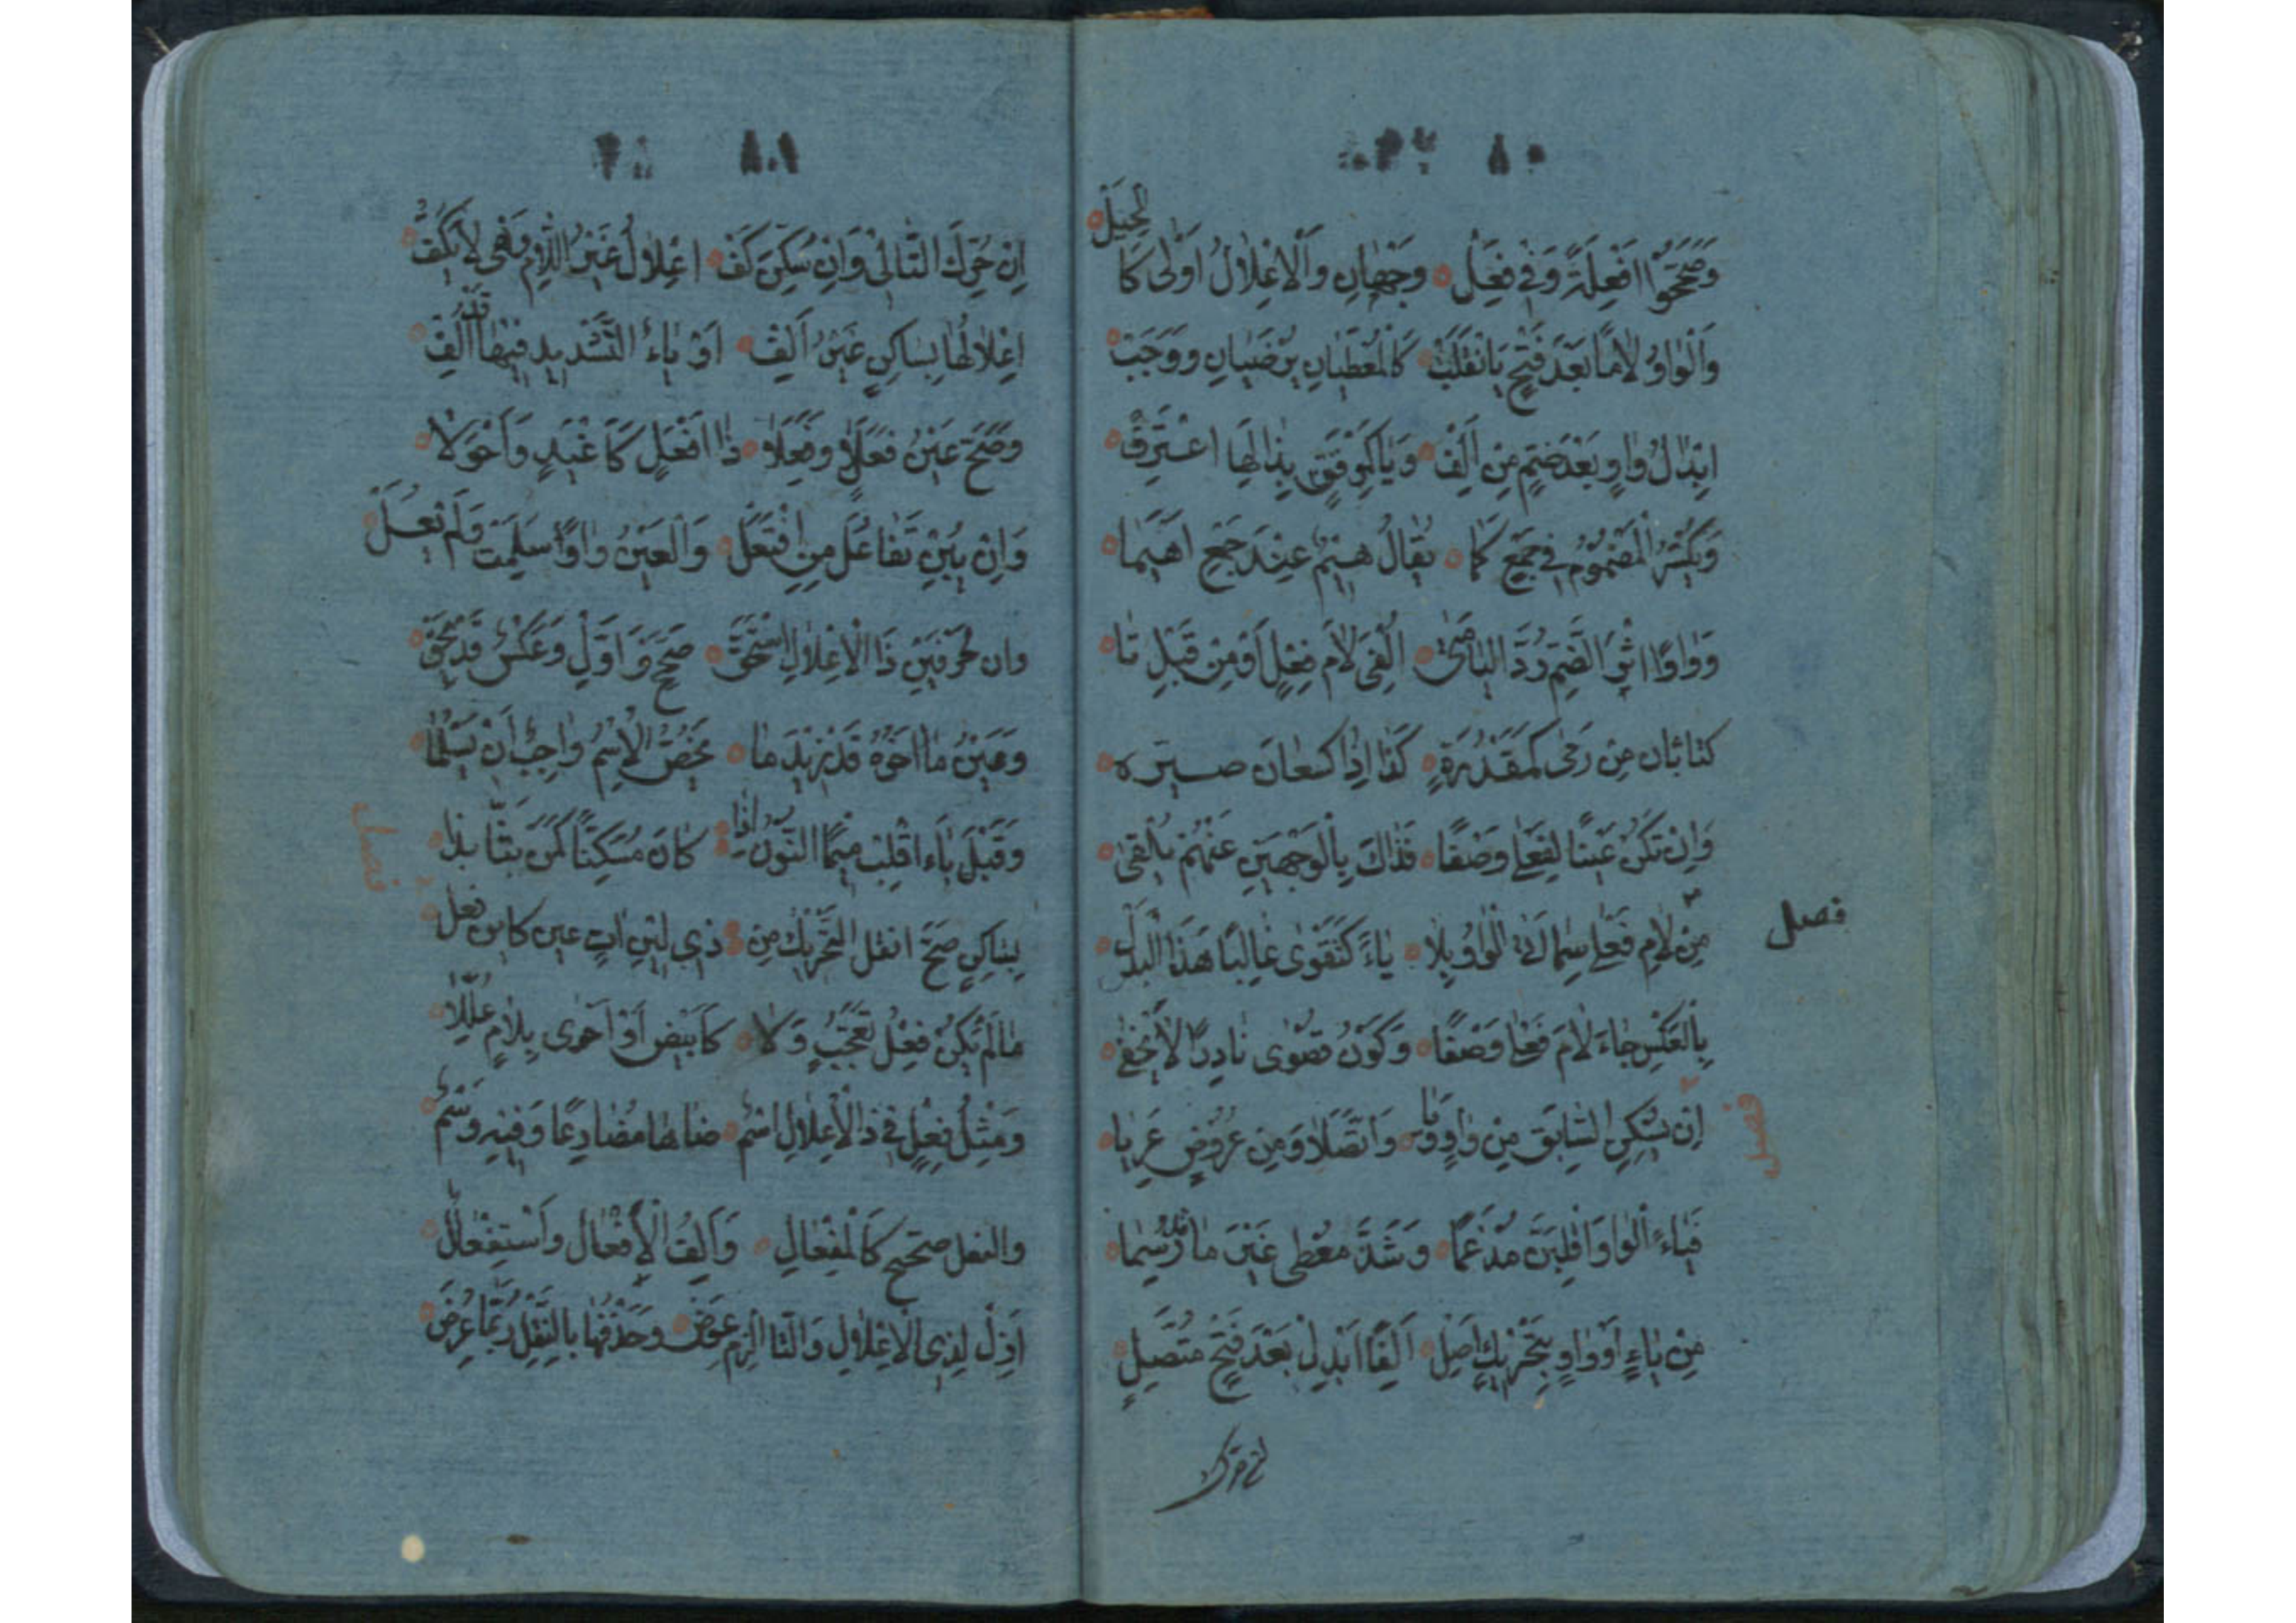 ٨٠
وَصَحَّحُوْا اَفْعِلَةً وَفِي فِعَلْ وَجْهَانِ وَالْاِعْلَالُ اَوْلٰى كَالحِيَلْ
وَالْوَاوُ لَامًا بَعْدَ فَتْحٍ يَا نْقَلَبْ كَالْمُعْطَيَانِ يُرْضَيَانِ وَوَجَبْ
اِبْدَالُ وَاوٍ بَعْدَ ضَمٍّ مِنْ اَلِفْ وَيَا كَمُوْقِنٍ بِذَا لَهَا اعْتَرِفْ
وَيُكْسَرُ الْمَضْمُوْمُ فِي جَمْعٍ كَمَا يُقَالُ هِيْمٌ عِنْدَ جَمْعِ اَهْيَمَا
وَوَاوًا اثْرَ الضَّمِّ رُدَّ الْيَا مَتٰى اُلْفِيَ لَامَ فِعْلٍ اَوْ مِنْ قَبْلِ تَا
كتاء بان مِنْ رَمٰى كَمَقْدُرَةٍ كَذَا اِذَا كسبعان صيره
وَاِنْ تَكُنْ عَيْنًا لِفُعْلٰى وَصْفًا فَذَاكَ بِالْوَجْهَيْنِ عَنْهُمْ يُلْفٰى
فصل
مِنْ لَامِ فَعْلٰى سْمًا اَتٰى الْوَاوُ بَدَلْ يَاءٍ كَتَقْوٰى غَالِبًا هٰذَا الْبَدَلْ
بِالْعَكْسِ جَاءَ لَامُ فُعْلٰى وَصْفًا وَكَوْنُ قُصْوٰى نَادِرًا لَا يَخْفٰى
فصل
اِنْ يَسْكُنِ السَّابِقُ مِنْ وَاوٍ وَيَا وَاتَّصَلَا وَمِنْ عُرُوْضٍ عَرِيَا
فَيَاءً الْوَاوَ اقْلِبَنَّ مُدْغِمًا وَشَذَّ مُعْطًى غَيْرَ مَا قَدْ رُسِمَا
مِنْ يَاءٍ اَوْ وَاوٍ بِتَحْرِيْكٍ اُصِلْ اَلِفًا ابْدِلْ بَعْدَ فَتْحٍ مُتَّصِلْ
٨١
اِنْ حُرِّكَ التَّالِيْ وَاِنْ سُكِّنَ كَفْ اِعْلَالَ غَيْرِ اللَّامِ وَهْيَ لَا يُكَفْ
اِعْلَالُهَا بِسَاكِنٍ غَيْرِ اَلِفْ اَوْ يَاءٍ التَّشْدِيْدُ فِيْهَا قَدْ اُلِفْ
وَصَحَّ عَيْنُ فَعَلٍ وَفَعِلَا ذَا اَفْعَلٍ كَاَغْيَدٍ وَاَحْوَلَا
وَاِنْ يَبِنْ تَفَاعُلٌ مِنِ افْتَعَلْ وَالْعَيْنُ وَاوٌ سَلِمَتْ وَلَمْ تُعَلْ
وان لِحَرْفَيْنِ ذَا الْاِعْلَالُ اسْتُحِقْ صُحِّحَ اَوَّلٌ وَعَكْسٌ قَدْ يَحِقْ
وَعَيْنُ مَا اٰخِرَهُ قَدْ زِيْدَ مَا يَخُصُّ الْاِسْمَ وَاجِبٌ اَنْ يَسْلَمَا
فصل
وَقَبْلَ بَاءٍ اقْلِبْ مِيْمًا النُّوْنَ اِذَا كَانَ مُسَكَّنًا كَمَنْ بَتَّ انْبِذَا
لِسَاكِنٍ صَحَّ انقل التَّحْرِيْكَ مِنْ ذي لِيْنٍ اٰتٍ عين فعل كابن
مَا لَمْ يَكُنْ فِعْلَ تَعَجُّبٍ وَلَا كَابْيَضَّ اَوْ اَهْوٰى بِلَامٍ عُلِّلَا
وَمِثْلُ فِعْلٍ فِي ذَا الْاِعْلَالِ اسْمُ ضَاهَا مُضَارِعًا وَفِيْهِ وَسْمُ
والفعل صحح كَالْمِفْعَالِ وَاَلِفُ الْاِفْعَالِ وَاسْتِفْعَالِ
اَزِلْ لِذِي الْاِعْلَالِ وَالتَّا الْزَمْ عِوَضْ وَحَذْفُهَا بِالنَّقْلِ رُبَّمَا عَرَضْ